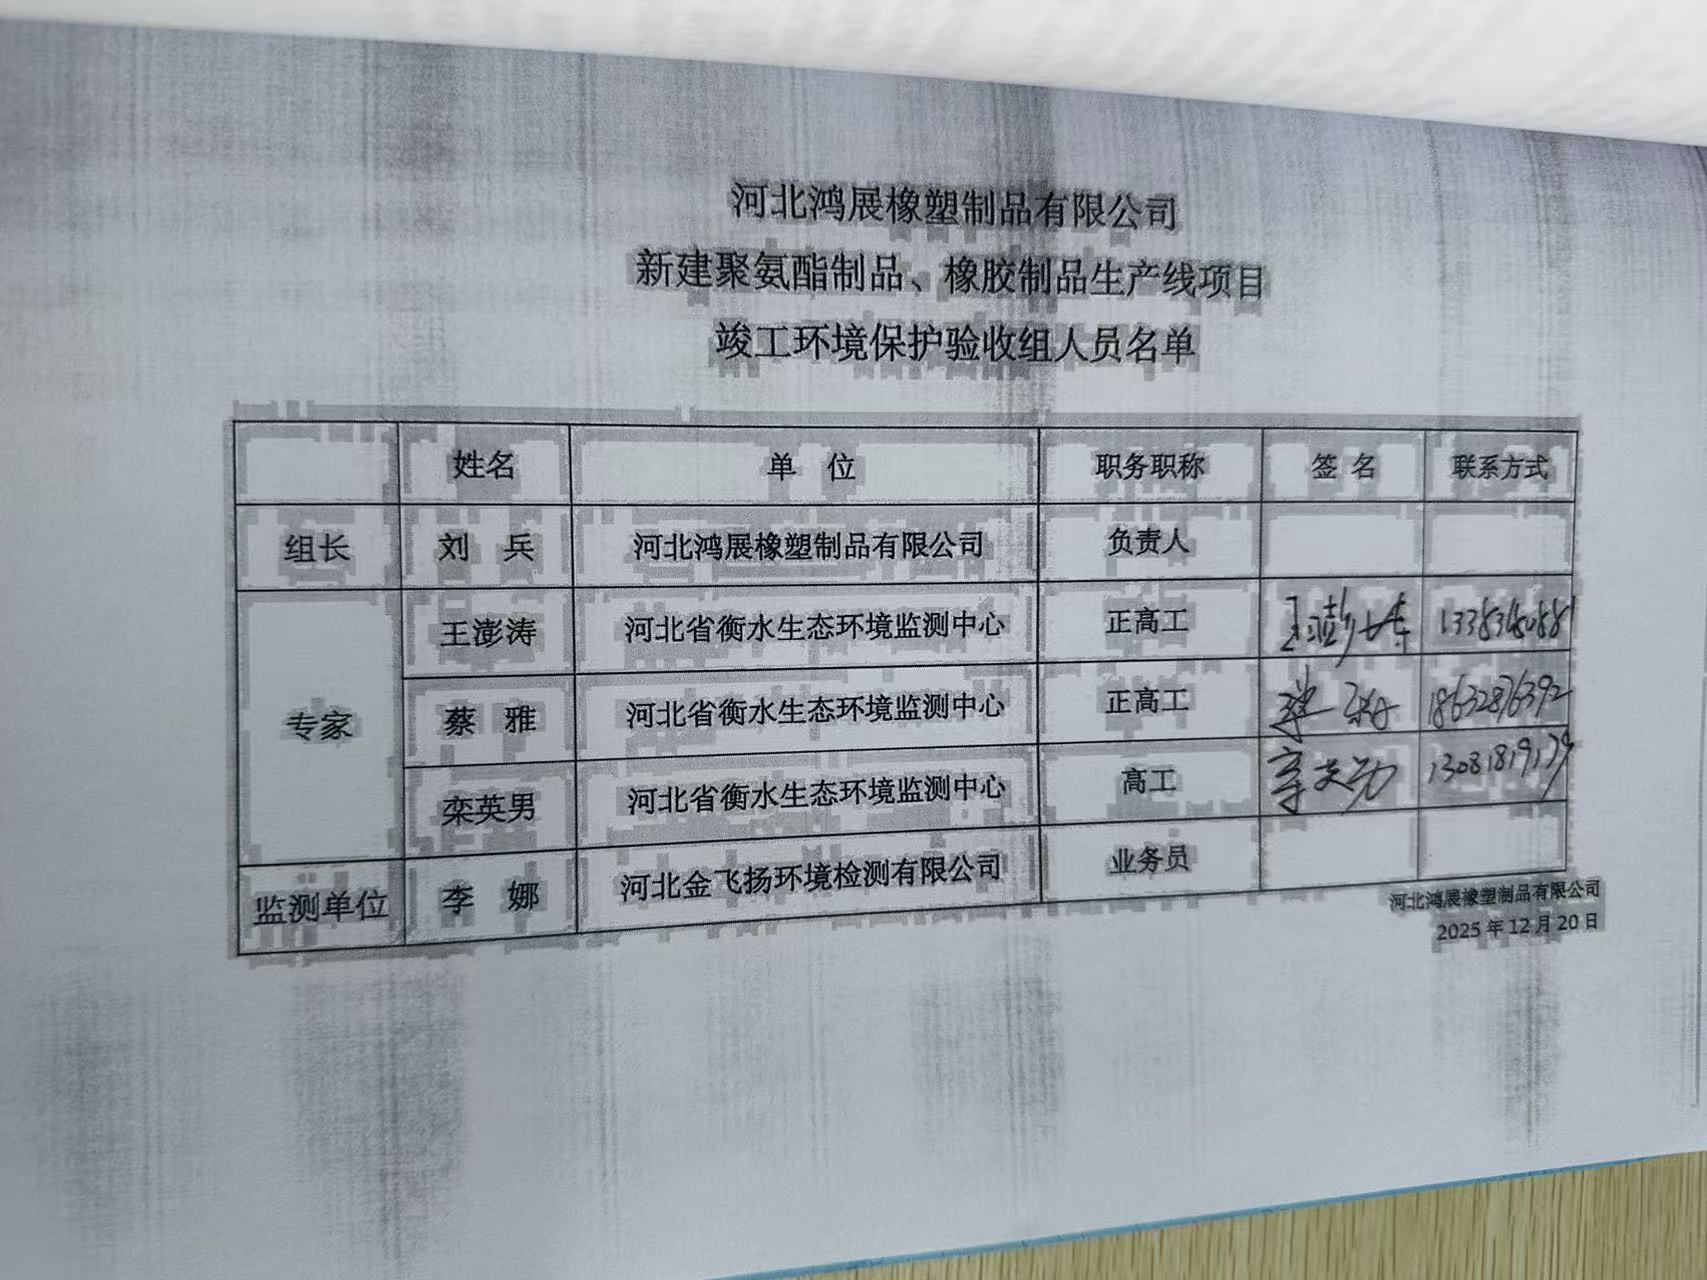 河北鸿展橡塑制品有限公司
新建聚氨酯制品、橡胶制品生产线项目
竣工环境保护验收组人员名单
姓名 单 位 职务职称 签 名 联系方式
组长 刘 兵 河北鸿展橡塑制品有限公司 负责人
专家
王澎涛 河北省衡水生态环境监测中心 正高工 王澎涛
蔡 雅 河北省衡水生态环境监测中心 正高工 18632876392
栾英男 河北省衡水生态环境监测中心 高工
监测单位 李 娜 河北金飞扬环境检测有限公司 业务员
河北鸿展橡塑制品有限公司
2025 年 12 月 20 日